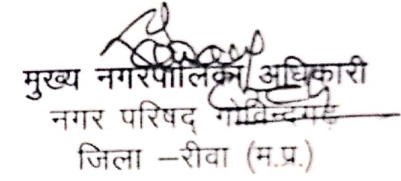 मुख्य नगरपालिका अधिकारी
नगर परिषद् गोविन्दगढ़
जिला –रीवा (म.प्र.)